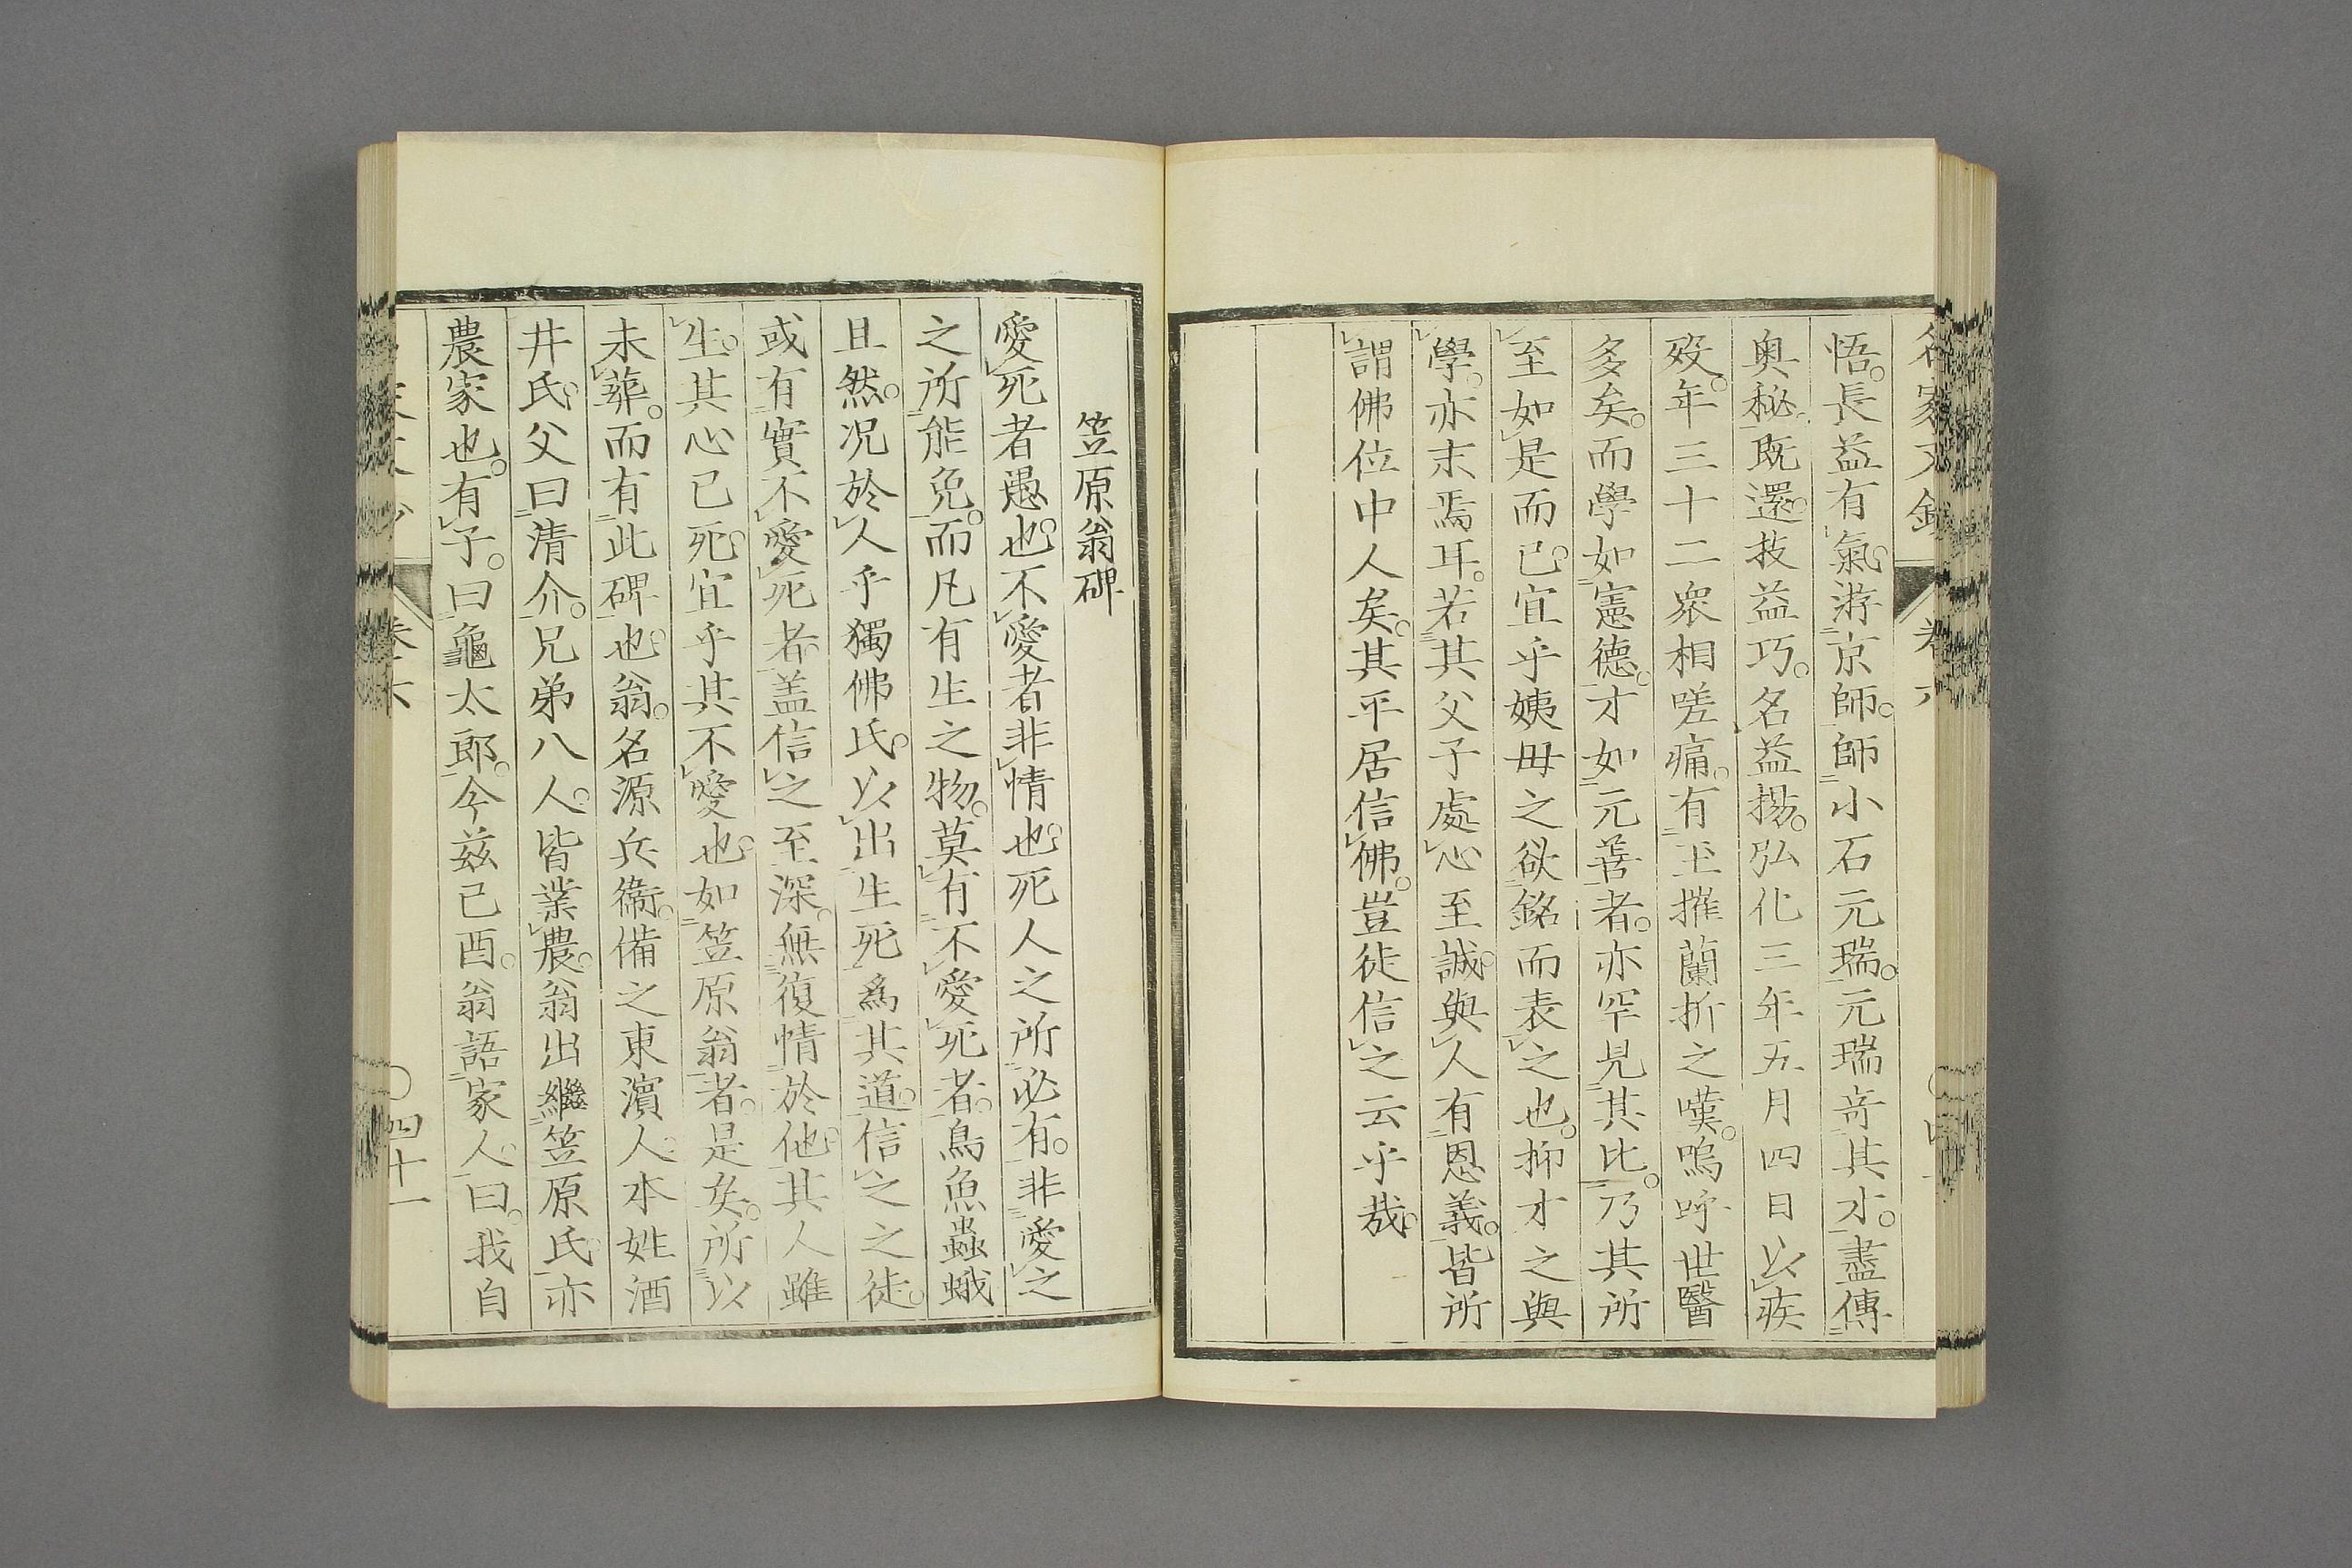 悟。長益有氣。游京師。師小石元瑞。元瑞奇其才。盡傳
奥秘。既還。技益巧。名益揚。弘化三年五月四日以疾
歿。年三十二衆相嗟痛。有玉摧蘭折之嘆。嗚呼世醫
多矣。而學如憲德。才如元善者。亦罕見其比。乃其所
至如是而已。宜乎姨母之欲銘而表之也。抑才之與
學。亦末焉耳。若其父子處心至誠。與人有恩義。皆所
謂佛位中人矣。其平居信佛。豈徒信之云乎哉。
笠原翁碑
愛死者愚也。不愛者非情也。死人之所必有。非愛之
之所能免。而凡有生之物。莫有不愛死者。鳥魚蟲蛾
且然。况於人乎獨佛氏。以出生死爲其道。信之之徒。
或有實不愛死者。盖信之至深。無復情於他。其人雖
生。其心已死。宜乎其不愛也。如笠原翁者。是矣。所以
未葬。而有此碑也。翁。名源兵衞。備之東濵人。本姓酒
井氏。父曰清介。兄弟八人。皆業農。翁出繼笠原氏。亦
農家也。有子。曰龜太郎。今茲己酉。翁語家人。曰。我自
卷六
四十一